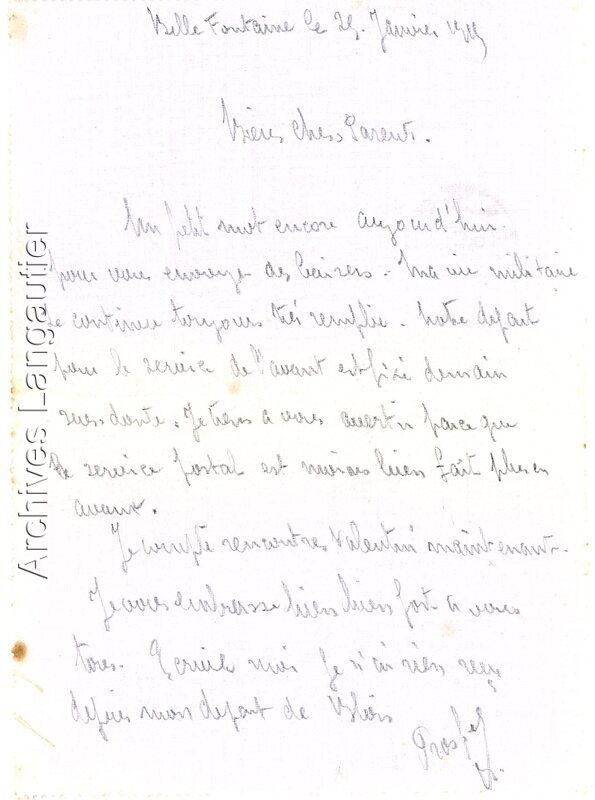 Belle Fontaine le 25 Janvier 1915
Biens chers Parents.
Un petit mot encore aujourd'hui
pour vous envoyer des baisers. Ma vie militaire
se continue toujours très remplie. Notre départ
pour le service de l'avant est fixé demain
sans doute. Je tiens a vous avertir parce que
le service postal est moins bien fait plus en
avant.
Je compte rencontrer Valentin maintenant.
Je vous embrasse biens biens fort a vous
tous. Ecrivez moi je n'ai rien reçu
depuis mon depart de Blois
Prosper
Archives Langautier